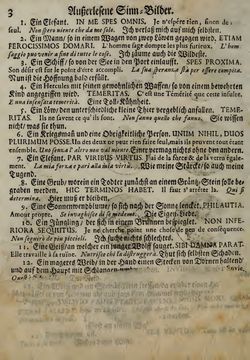 3 Auserlesene Sinn-Bilder.
1. Ein Elefant. IN ME SPES OMNIS, Je n'espére rien, sinon de
seul. Non spero niente che da me solo. Ich verlaß mich auf mich selbsten.
2. Ein Mann/ so in einem Wagen von zwey Löwen gezogen wird, ETIAM
FEROCISSIMOS DOMARI. L'homme sage dompte les plus furieux. L'huom
saggio puo venire a fine di tutte le cose. Ich zäume auch die Wildeste.
3. Ein Schiff/ so von der See in den Port einlaufft. SPES PROXIMA.
Son désir est sur le point d'etre accompli. La sua speranza sta per essere compita.
Nun ist die Hoffnung bald erfüllt.
4. Ein Hercules mit seinen gewöhnlichen Waffen/ so von einem bewehrten
Kind angegriffen wird. TEMERITAS. C'est une Temérité que cette insulte.
E una temeraria Eine Toll-Kühnheit.
5. Ein Löwe den unterschiedliche kleine Thier vergeblich anfallen. TEME-
RITAS. Ils ne savent ce qu'ils font. Non sanno quello che fanno. Sie wissen
nicht was sie thun.
6. Ein Kriegsmann und eine Obrigkeitliche Person. UNUM NIHIL, DUOS
PLURIMUM POSSE. Un ou deux ne peut rien faire seul, mais ils peuvent tout étant
ensemble. Einer vermag nichts ohne den andern.
7. Ein Elefant. PAR VIRIBUS VIRTUS. J'ai de la force & de la vertu égale-
ment. La mia forza è pari alla mia virtù. Wie meine Stärcke so auch meine
Tugend.
8. Eine Grube/ worein ein Todter zunächst an einem Gräntz-Stein solle be-
graben werden. HIC TERMINUS HABET. Il faut s'arrêter là. Qui si
Hier muß er bleiben.
9. Eine Sonnenblume/ so sich nach der Sonne lencket. PHILAUTIA.
Amour propre. Die Eigen-Liebe.
10. Ein Jüngling/ der sich in einem Brunnen bespieglet. NON INFE-
RIORA SEQUUTUS. Je ne cherche pas une chose de peu de consequence.
Ich suche nichts schlechtes.
11. Eine Geiß/ an welcher ein junger Wolff sauget. SIBI DAMNA PARAT.
Elle travaille à sa ruine. Thut sich selbsten Schaden.
12. Ein mageres Weib/ in der Hand einen Stecken von Dornen haltend
und auf dem Haupt mit Schlangen